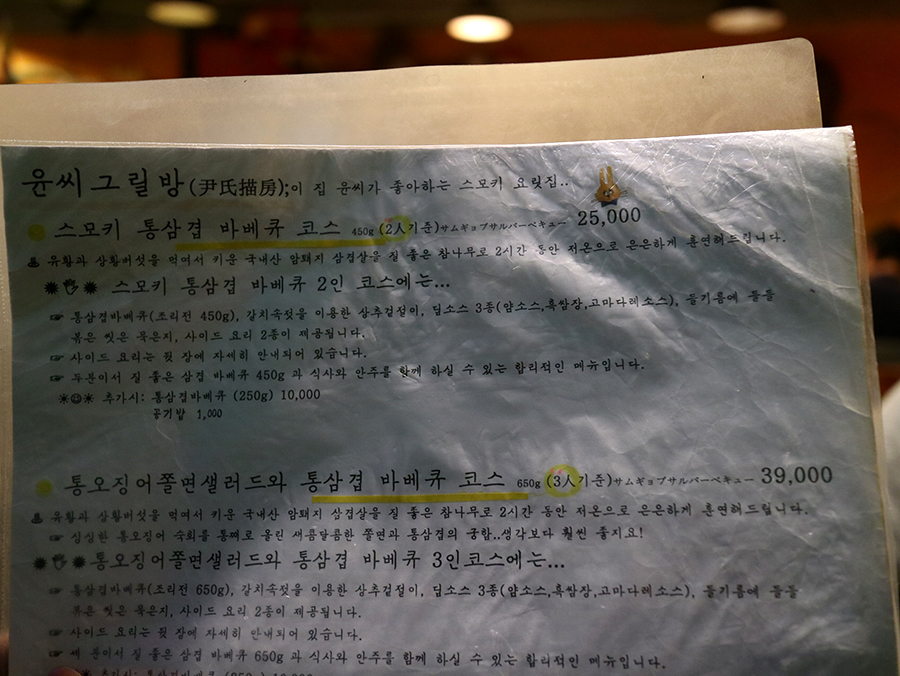 윤씨그릴방(尹氏描房);이 집 윤씨가 좋아하는 스모키 요릿집..
스모키 통삼겹 바베큐 코스 450g (2人기준)サムギョプサルバーベキュー 25,000
유황과 상황버섯을 먹여서 키운 국내산 암퇘지 삼겹살을 질 좋은 참나무로 2시간 동안 저온으로 은은하게 훈연해드립니다.
스모키 통삼겹 바베큐 2인 코스에는...
통삼겹바베큐(조리전 450g), 갈치속젓을 이용한 상추겉절이, 딥소스 3종(얌소스,흑쌈장,고마다레소스), 들기름에 들들
볶은 씻은 묵은지, 사이드 요리 2종이 제공됩니다.
사이드 요리는 뒷 장에 자세히 안내되어 있습니다.
두분이서 질 좋은 삼겹 바베큐 450g 과 식사와 안주를 함께 하실 수 있는 합리적인 메뉴입니다.
추가시: 통삼겹바베큐 (250g) 10,000
공기밥 1,000
통오징어쫄면샐러드와 통삼겹 바베큐 코스 650g (3人기준)サムギョプサルバーベキュー 39,000
유황과 상황버섯을 먹여서 키운 국내산 암퇘지 삼겹살을 질 좋은 참나무로 2시간 동안 저온으로 은은하게 훈연해드립니다.
싱싱한 통오징어 숙회를 통째로 올린 새콤달콤한 쫄면과 통삼겹의 궁합..생각보다 훨씬 좋지요!
통오징어쫄면샐러드와 통삼겹 바베큐 3인코스에는...
통삼겹바베큐(조리전 650g), 갈치속젓을 이용한 상추겉절이, 딥소스 3종(얌소스,흑쌈장,고마다레소스), 들기름에 들들
볶은 씻은 묵은지, 사이드 요리 2종이 제공됩니다.
사이드 요리는 뒷 장에 자세히 안내되어 있습니다.
세 분이서 질 좋은 삼겹 바베큐 650g 과 식사와 안주를 함께 하실 수 있는 합리적인 메뉴입니다.
추가시: 통삼겹바베큐